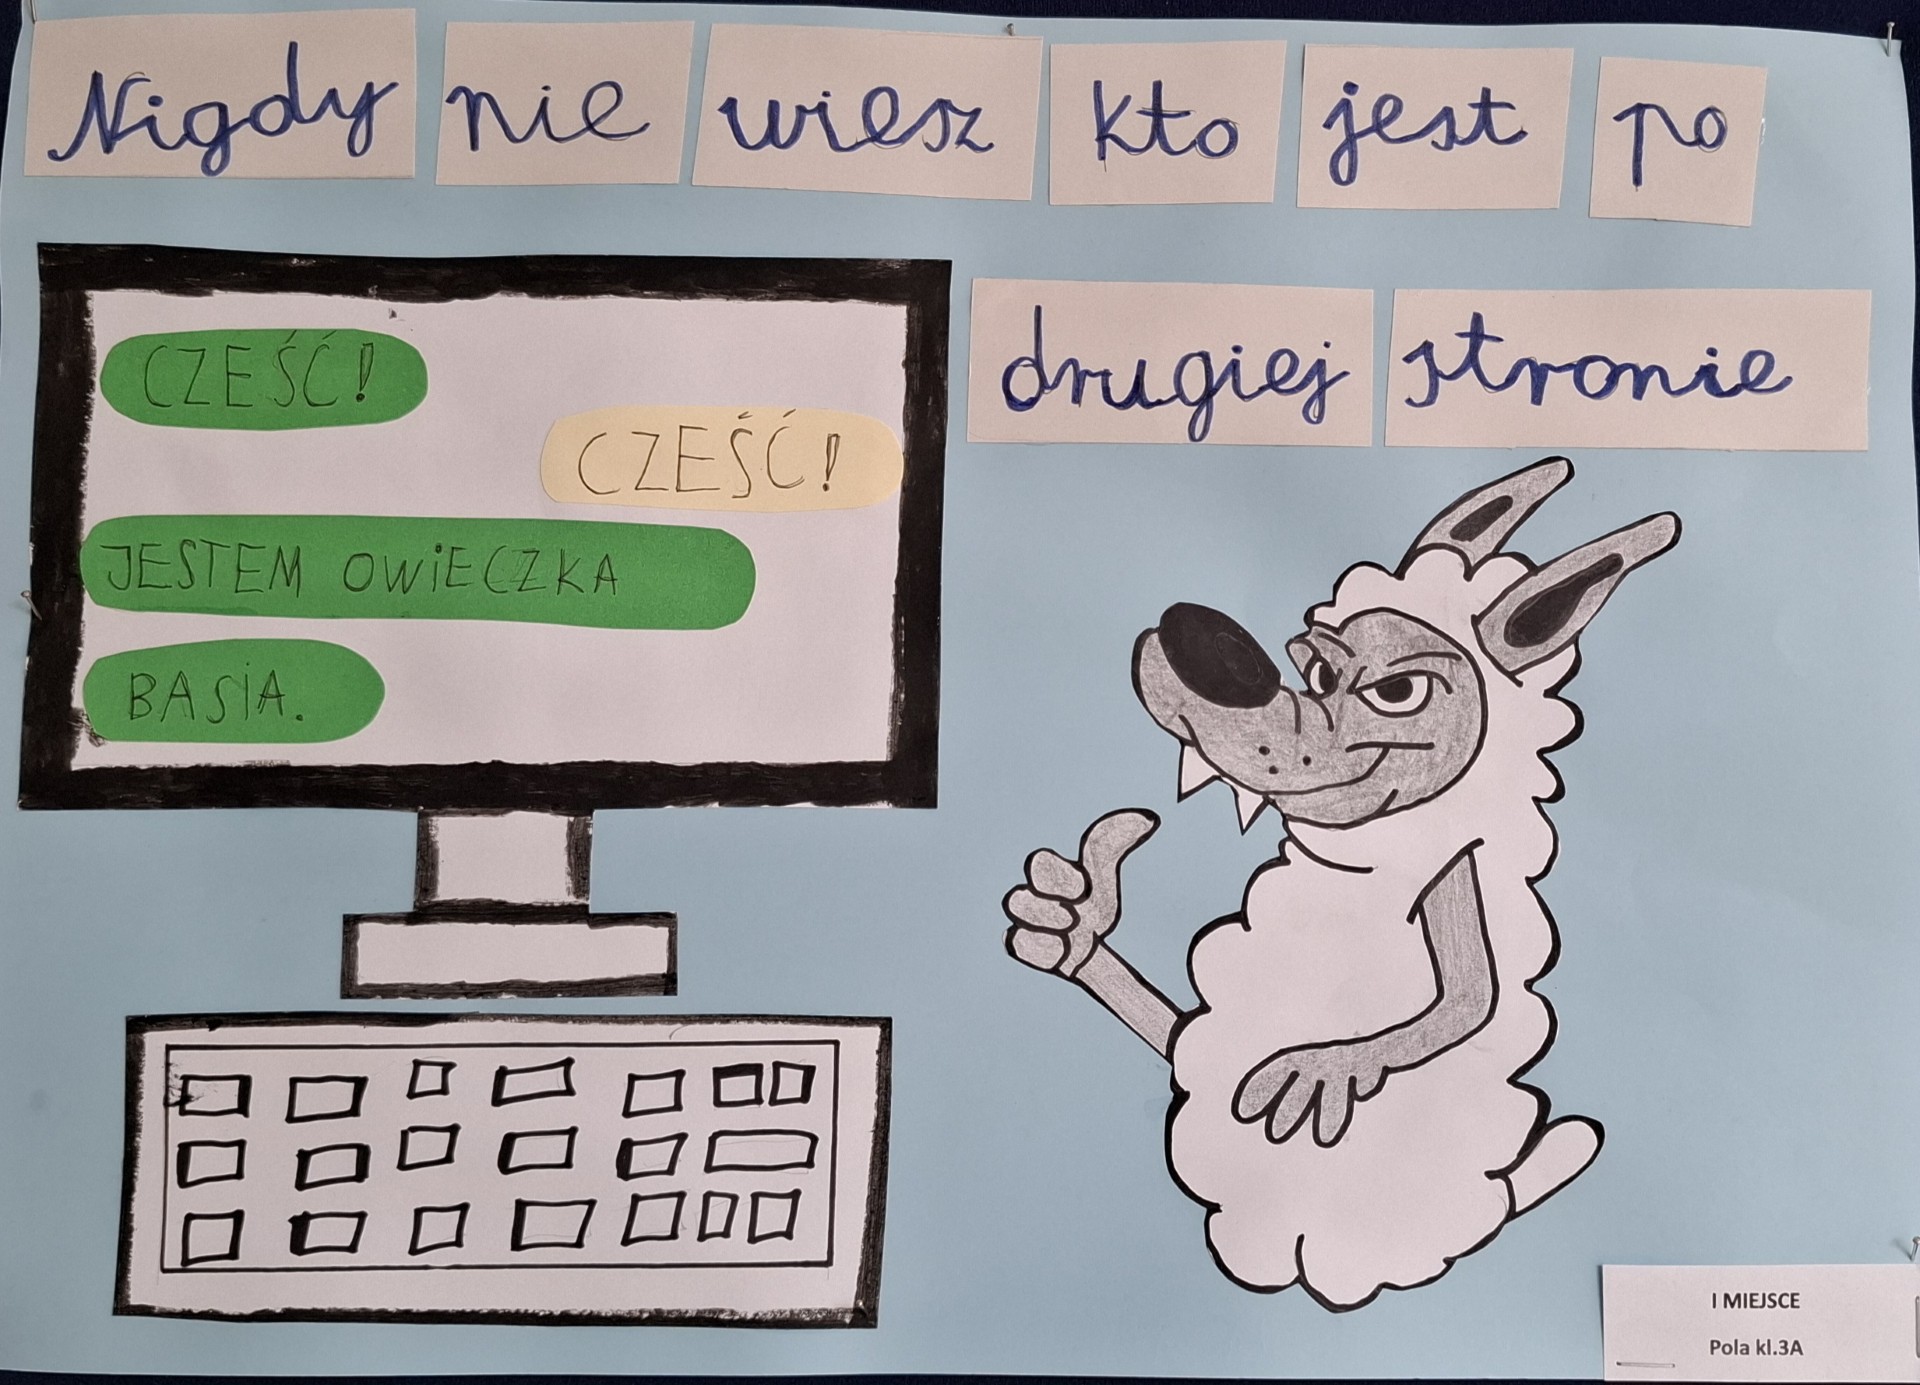 Nigdy nie wiesz kto jest po
drugiej stronie
CZEŚĆ!
CZEŚĆ!
JESTEM OWiECZKA
BASiA.
I MIEJSCE
Pola kl.3A